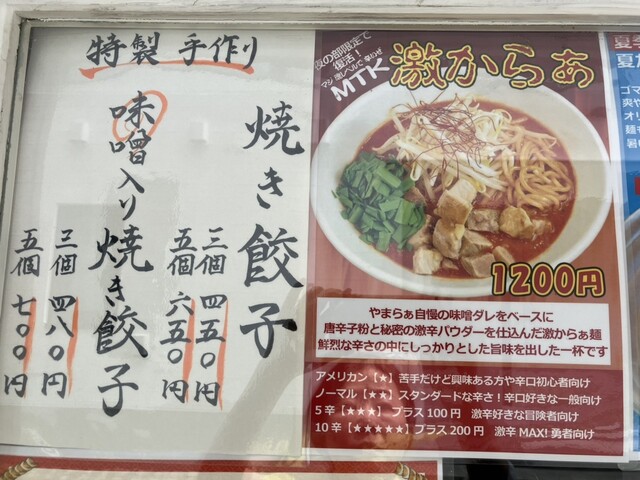 特製 手作り
焼き餃子
三個 四五〇円
五個 六五〇円
味噌入り焼き餃子
三個 四八〇円
五個 七〇〇円
復活！
MTK
激からぁ
1200円
やまらぁ自慢の味噌ダレをベースに
唐辛子粉と秘密の激辛パウダーを仕込んだ激からぁ麺
鮮烈な辛さの中にしっかりとした旨味を出した一杯です
アメリカン【★】苦手だけど興味ある方や辛口初心者向け
ノーマル【★★】スタンダードな辛さ！辛口好きな一般向け
5辛【★★★】プラス100円 激辛好きな冒険者向け
10辛【★★★★★】プラス200円 激辛MAX！勇者向け